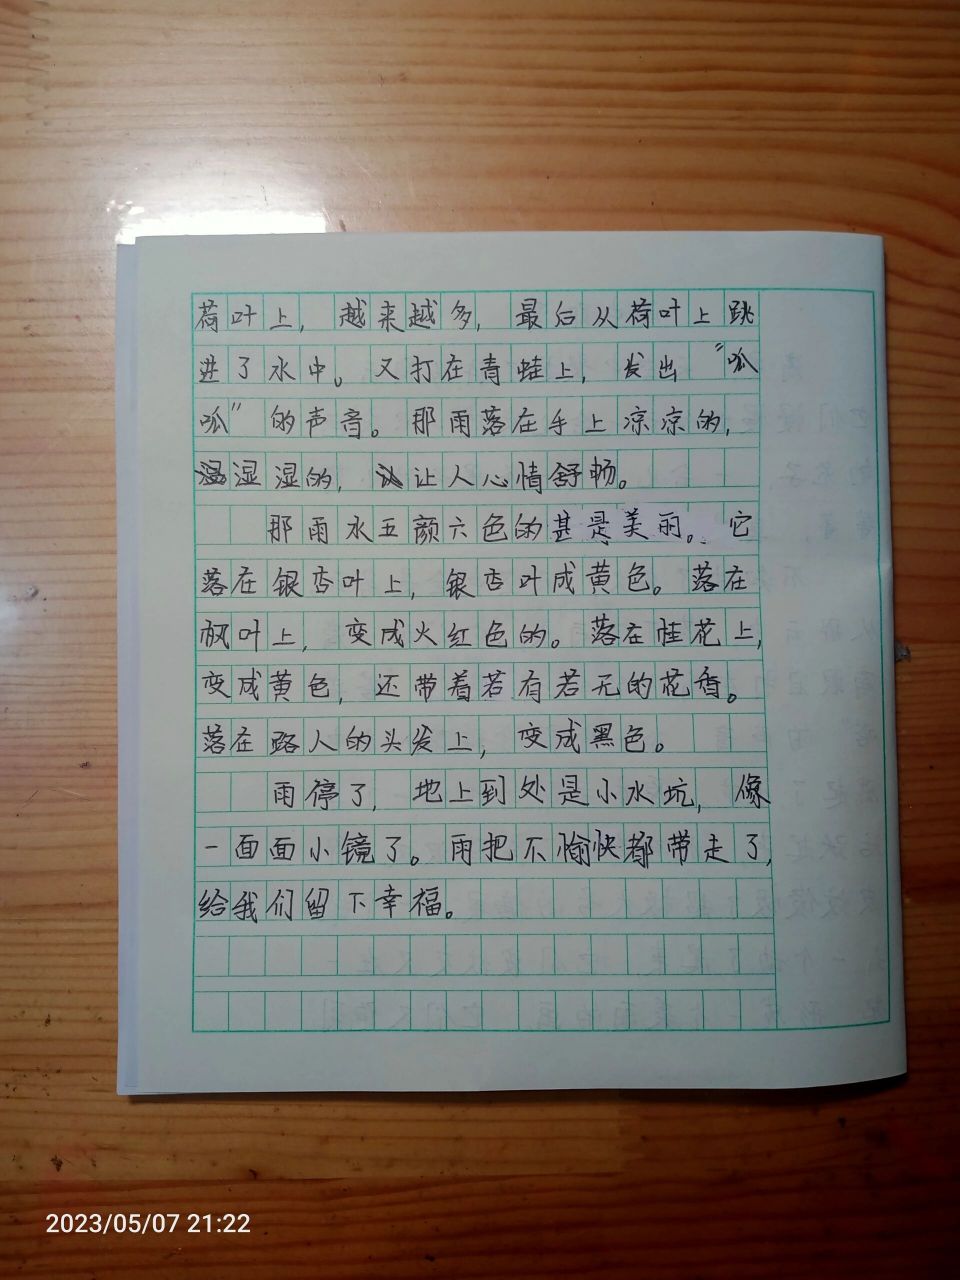 荷叶上，越来越多，最后从荷叶上跳
进了水中。又打在青蛙上，发出“呱
呱”的声音。那雨落在手上凉凉的，
湿湿的，让人心情舒畅。
那雨水五颜六色的甚是美丽。它
落在银杏叶上，银杏叶成黄色。落在
枫叶上，变成火红色的。落在桂花上，
变成黄色，还带着若有若无的花香。
落在路人的头发上，变成黑色。
雨停了，地上到处是小水坑，像
一面面小镜了。雨把不愉快都带走了，
给我们留下幸福。
2023/05/07 21:22